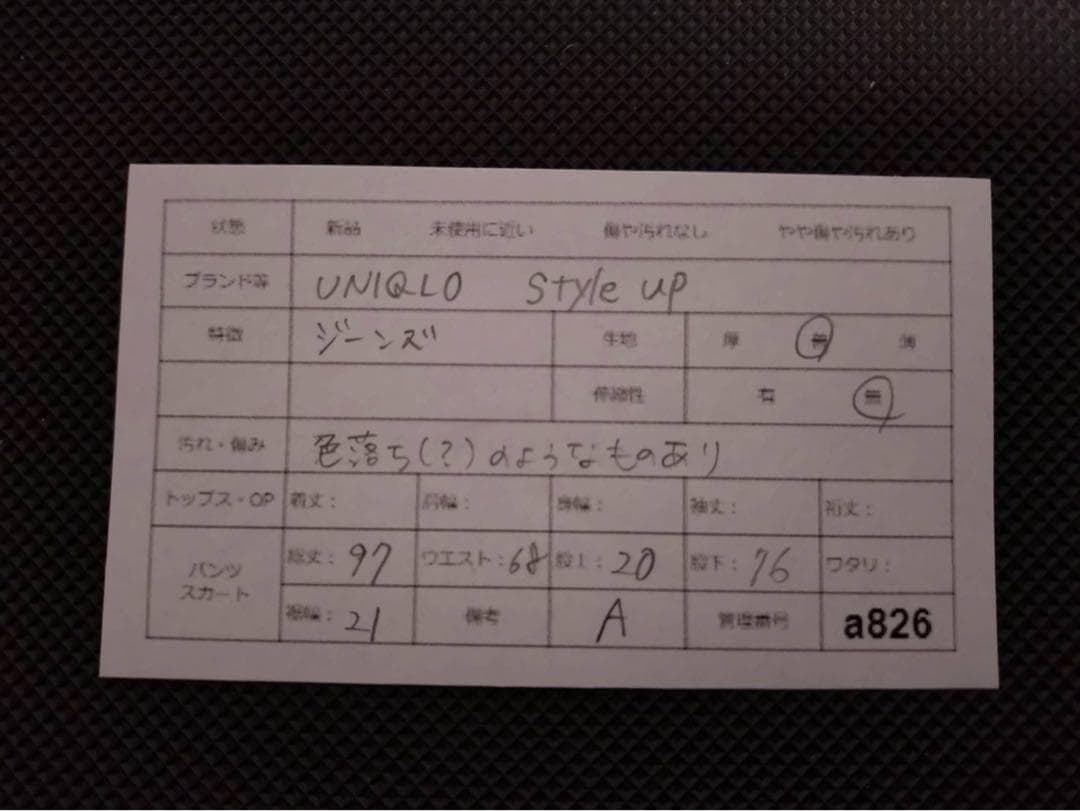 状態 新品 未使用に近い 傷や汚れなし やや傷や汚れあり
ブランド等 UNIQLO Style up
特徴 ジーンズ 生地 厚 普 薄
伸縮性 有 無
汚れ・傷み 色落ち(?)のようなものあり
トップス・OP 着丈： 肩幅： 身幅： 袖丈： 裄丈：
パンツ スカート 総丈：97 ウエスト：68 股上：20 股下：76 ワタリ：
裾幅：21 備考 A 管理番号 a826